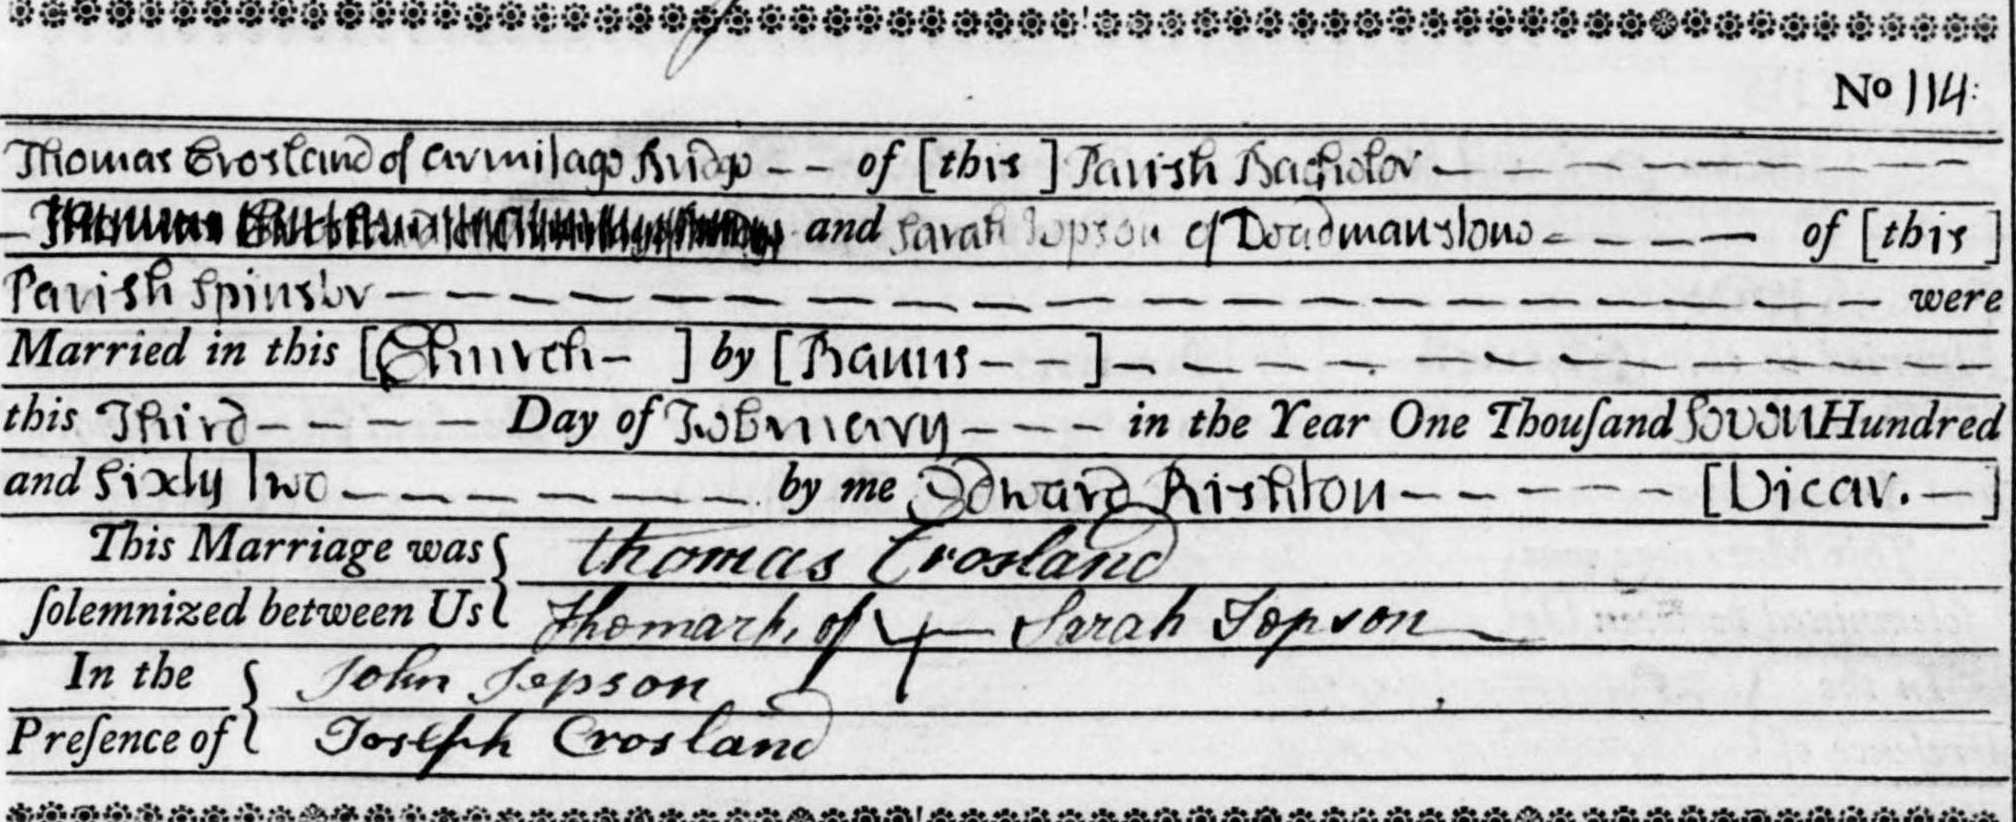 No 114:
Thomas Crosland of Armilage Bridge -- of [this] Parish Bachelor
and Sarah Jepson of Deadmanstone ---- of [this]
Parish Spinster were
Married in this [Church-] by [Banns--]
this Third ---- Day of February --- in the Year One Thouſand Seven Hundred
and Sixty Two by me Edward Rishton ----- [Vicar.-]
This Marriage was { Thomas Crosland
ſolemnized between Us { The mark of Sarah Jepson
In the { John Jepson
Preſence of { Joseph Crosland